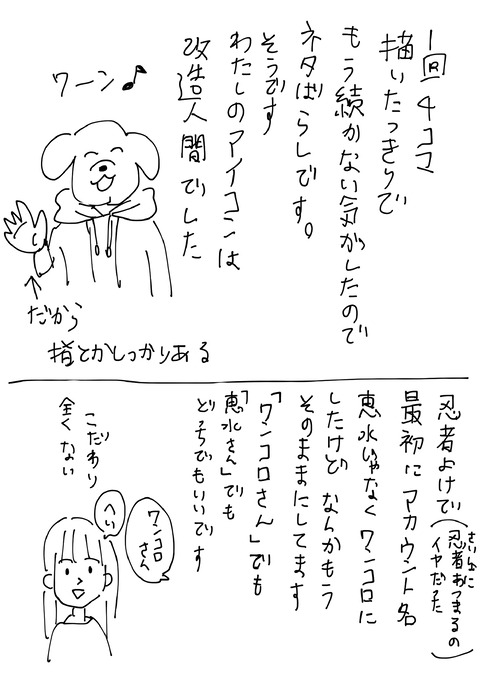 1回4コマ
描いたっきりで
もう続かない気がしたので
ネタばらしです。
そうです
わたしのアイコンは
改造人間でした
ワーン♪
だから
指とかしっかりある
忍者よけで
(さいしょに
忍者あつまるの
イヤだった)
最初にアカウント名
恵水じゃなくワンコロに
したけど なんかもう
そのままにしてます
「ワンコロさん」でも
「恵水さん」でも
どっちでもいいです
ワンコロ
さん
へい
こだわり
全くない